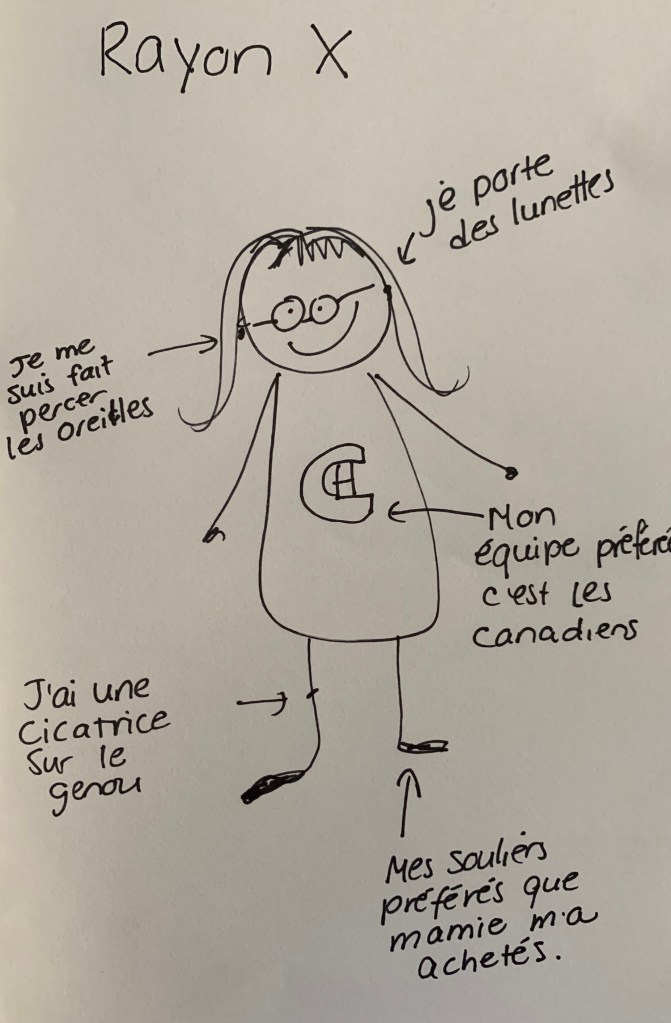 Rayon X
je porte
des lunettes
Je me
suis fait
percer
les oreilles
CH
Mon
équipe préféré
c'est les
canadiens
J'ai une
cicatrice
sur le
genou
Mes souliers
préférés que
mamie m'a
achetés.